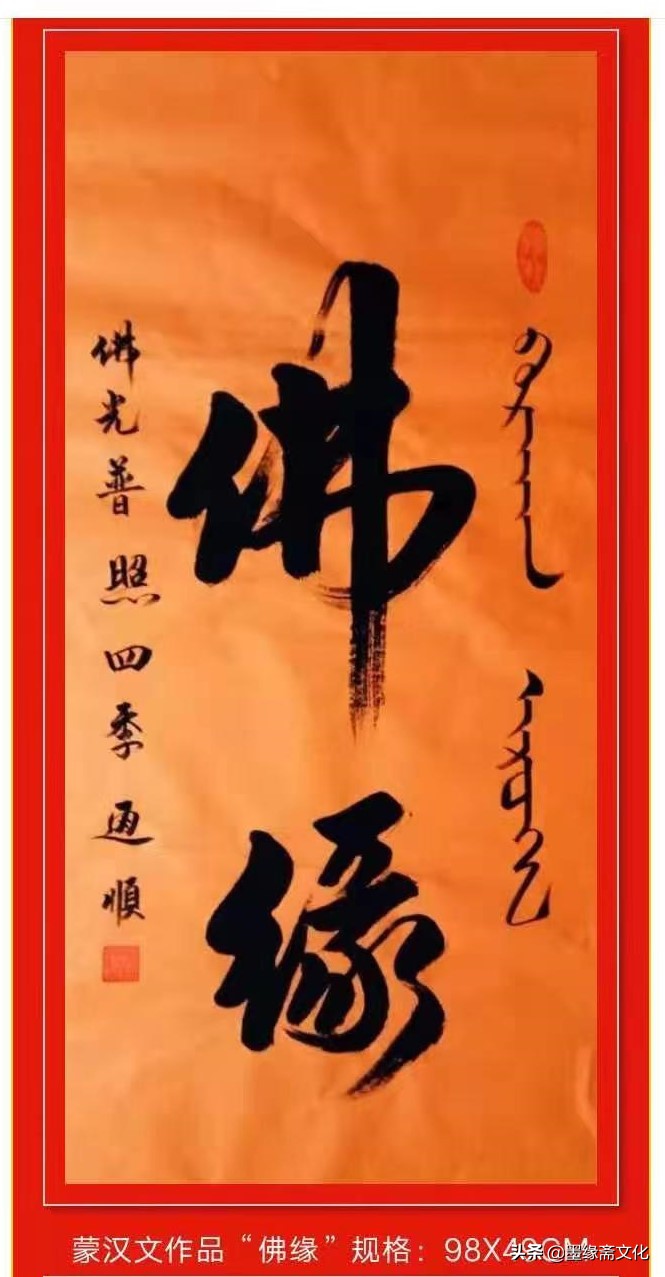 佛缘
佛光普照四季通順
蒙汉文作品“佛缘”规格：98X49CM
头条@墨缘斋文化